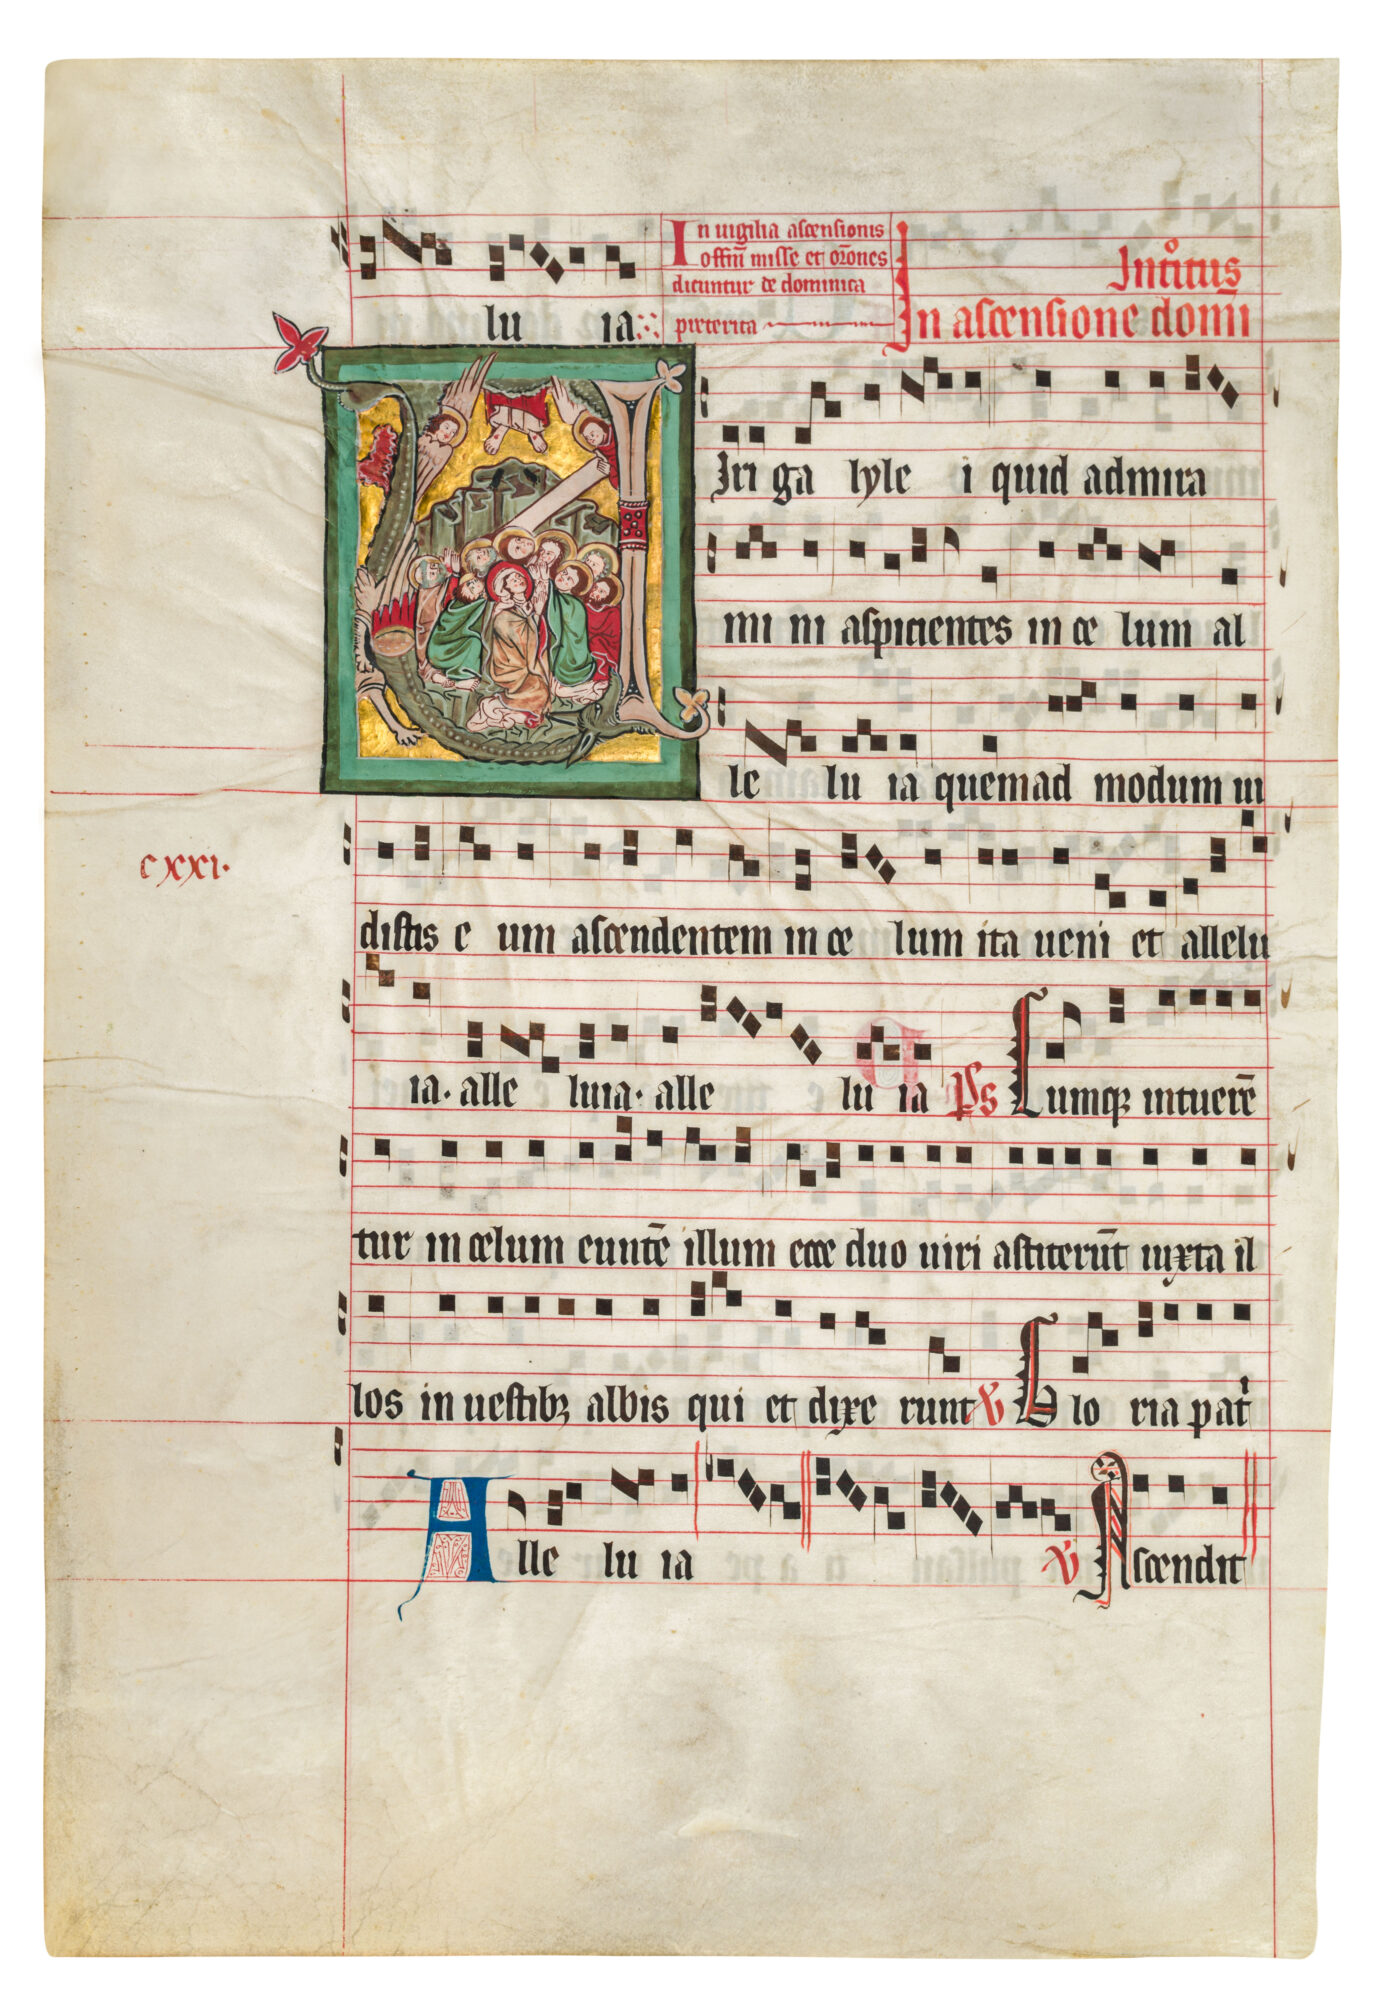 lu ia
In uigilia ascensionis
offm̄ misse et or̄ones
dicuntur de dominica
preterita
Introitus
In ascensione domī
Viri ga lyle i quid admira
mi ni aspicientes in ce lum al
le lu ia quemad modum ui
distis e um ascendentem in ce lum ita ueni et allelu
cxxi.
ia. alle luia. alle lu ia Ps Cumq; intuerē
tur in celum euntē illum ecce duo uiri astiterūt iuxta il
los in uestibꝫ albis qui et dixe runt V Glo ria pat̄
Alle lu ia V Ascendit